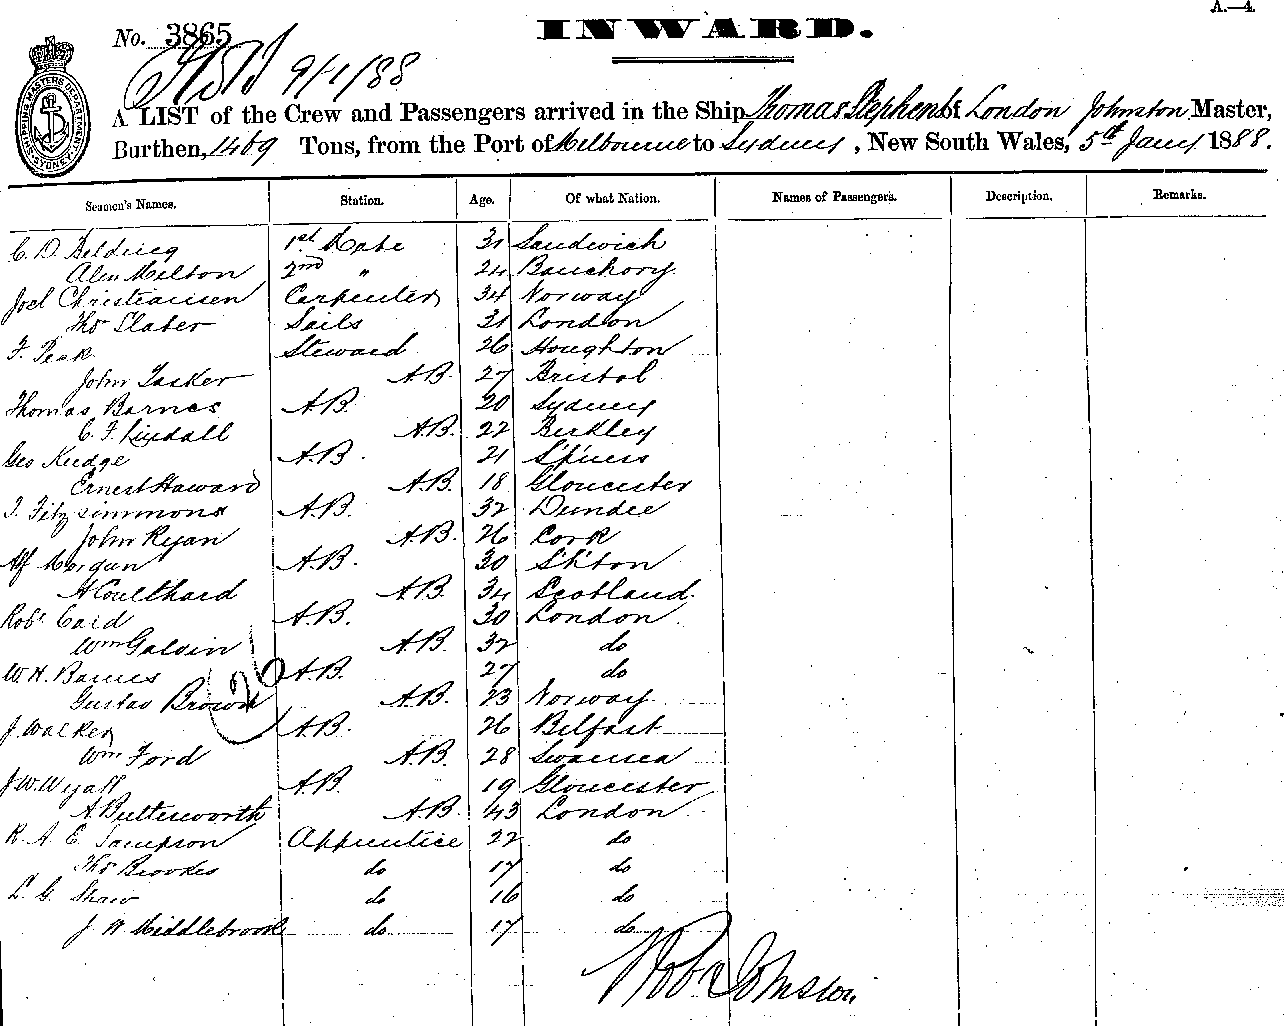 A.—4.
INWARD.
No. 3865
9/1/88
A LIST of the Crew and Passengers arrived in the Ship Thomas Stephens of London Johnston Master,
Burthen, 1469 Tons, from the Port of Melbourne to Sydney, New South Wales, 5th Jany 1888.
SHIPPING MASTERS DEPARTMENT SYDNEY
Seamen's Names. Station. Age. Of what Nation. Names of Passengers. Description. Remarks.
C. D. Belding 1st Mate 31 Sandwich
Alex Milton 2nd " 24 Banchory
Joel Christiansen Carpenter 34 Norway
Thos Slater Sails 31 London
F. Peak Steward 26 Houghton
John Tasker A.B. 27 Bristol
Thomas Barnes A.B. 20 Sydney
C. F. Lindall A.B. 22 Berkley
Geo Kudge A.B. 21
Ernest Haward A.B. 18 Gloucester
J. Fitzsimmons A.B. 32 Dundee
John Ryan A.B. 26 Cork
Alf Morgan A.B. 30
A Coulthard A.B. 34 Scotland
Robt Caid A.B. 30 London
Wm Galvin A.B. 32 do
W. H. Barnes A.B. 27 do
26
Gustav Brown A.B. 23 Norway
J. Walker A.B. 26 Belfast
Wm Ford A.B. 28 Swansea
J. W. Wyatt A.B. 19 Gloucester
A. Butterworth A.B. 43 London
R. A. E. Sampson Apprentice 22 do
Thos Brookes do 17 do
L. G. Shaw do 16 do
J. W Middlebrook do 17 do
Robt Johnston